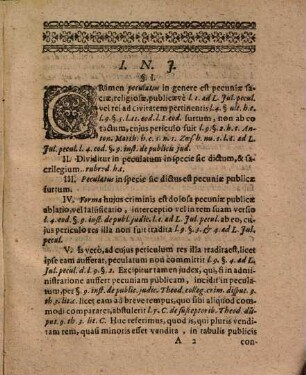 I. N. J.
§. I.
CRimen peculatus in genere est pecuniæ sa-
cræ, religiosæ, publicævè l. 1. ad L. Jul. pecul.
vel rei ad civitatem pertinentis l. 4. § ult. h. t.
furtum, non ab eo
factum, cujus periculo fuit l. 9. §. 2. h. t.
II. Dividitur in peculatum in specie sic dictum, & sa-
crilegium. rubr. d. h. t.
III. Peculatus in specie sic dictus est pecuniæ publicæ
furtum.
IV. Forma hujus criminis est dolosa pecuniæ publicæ
ablatio, vel falsificatio, interceptio vel in rem suam verso
l. 4. cod. §. 9. inst. de publ. judic. l. 1. ad L. Jul. pecul. ab eo, cu-
jus periculo res illa non fuit tradita l. 9. §. 3. & 4. ad L. Jul.
pecul.
V. Is verò, ad cujus periculum res illa tradita est, licet
eam asserat, peculatum non committit l. 9. §. 4. ad L.
Jul. pecul. d. l. 9. §. 2. Excipitur tamen judex, qui, si in admi-
nistratione aufsert pecuniam publicam, incidit in pecula-
tum, per §. 9. inst. de public. judic. Theod. colleg. crim. disput. 9.
th. 3. lit. licet eam ad breve tempus, quo sibi aliquod com-
modi compararet, abstulerit Theod. dis-
put. 9. th. 3. lit. C. Huc referimus, quod is, qui pluris vendi-
tam rem, quasi minoris esset vendita, in tabulis publicis
A 2 con-